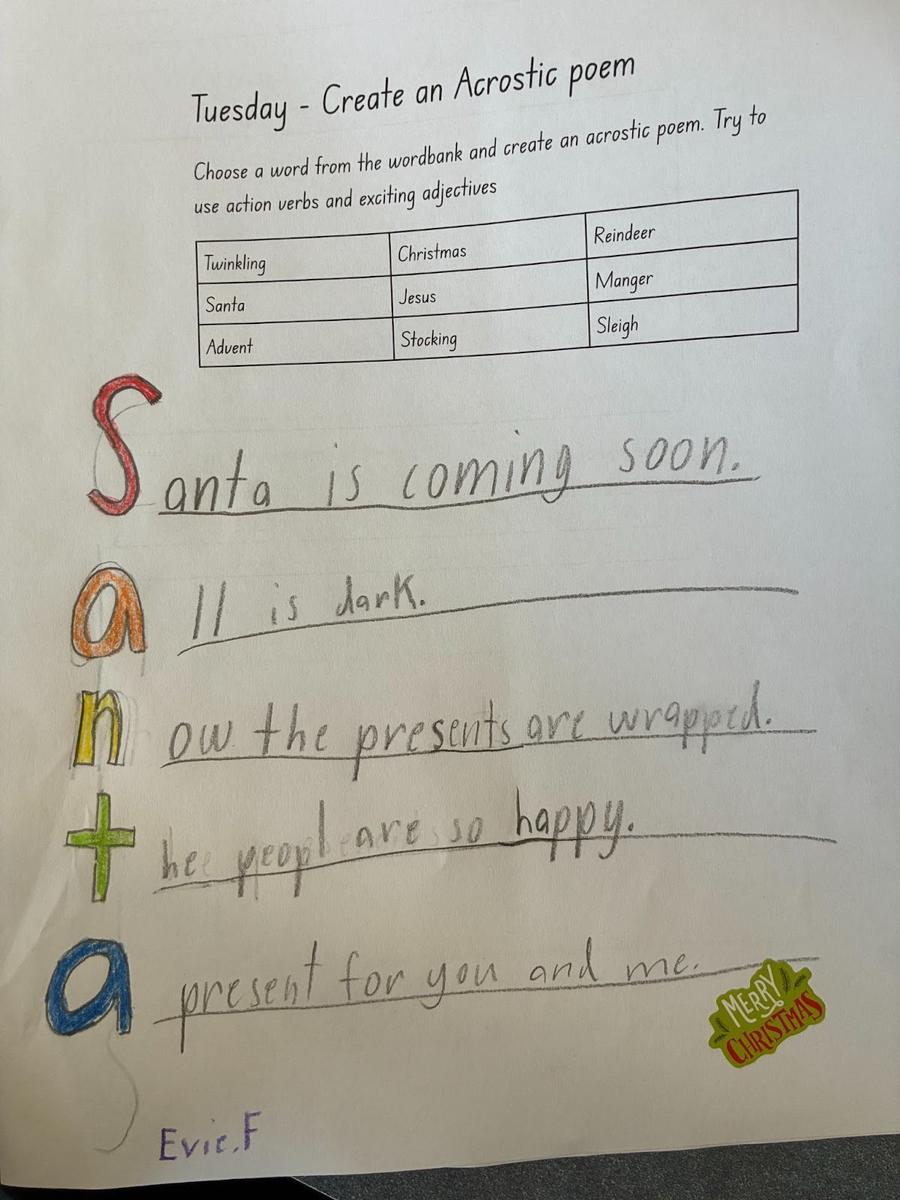 Tuesday - Create an Acrostic poem
Choose a word from the wordbank and create an acrostic poem. Try to
use action verbs and exciting adjectives
Twinkling Christmas Reindeer
Santa Jesus Manger
Advent Stocking Sleigh
Santa is coming soon.
all is dark.
now the presents are wrapped.
the peopl are so happy.
a present for you and me.
MERRY
CHRISTMAS
Evie.F